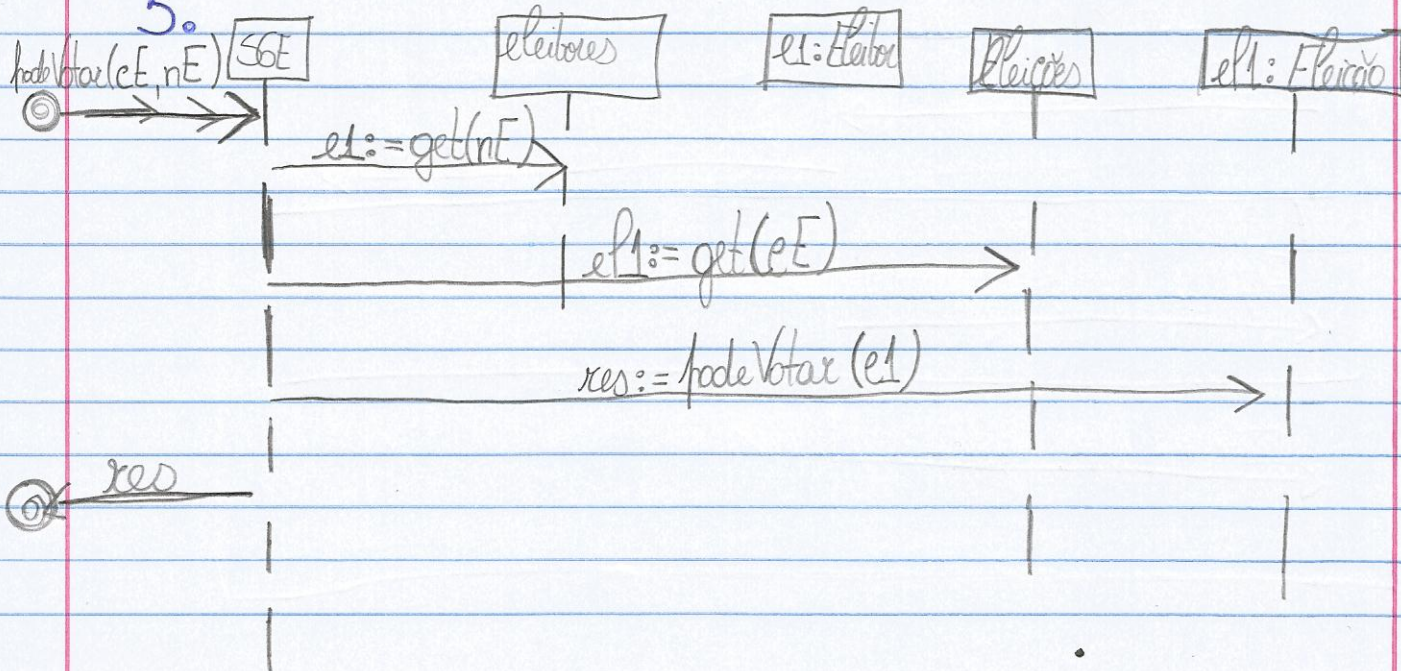 5.
podeVotar(eE, nE)
SGE
eleitores
e1: Eleitor
Eleições
el1: Eleição
e1:=get(nE)
el1:=get(eE)
res:=podeVotar(e1)
res